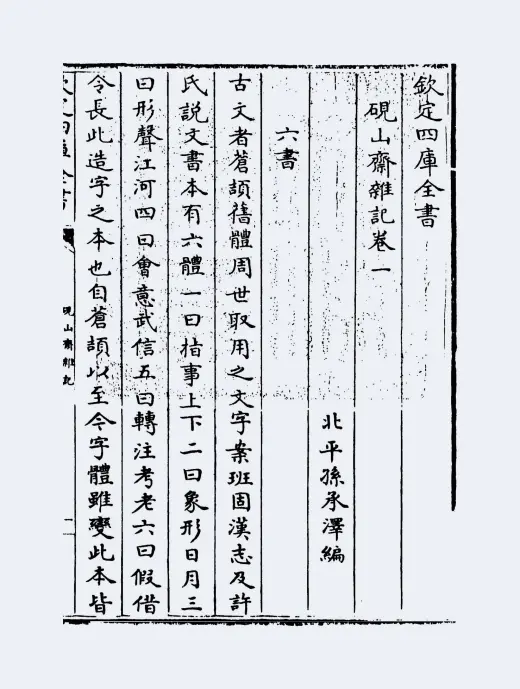 欽定四庫全書
硯山齋雜記卷一
北平孫承澤編
六書
古文者蒼頡舊體周世取用之文字案班固漢志及許
氏説文書本有六體一曰指事上下二曰象形日月三
曰形聲江河四曰會意武信五曰轉注考老六曰假借
令長此造字之本也自蒼頡以至今字體雖變此本皆
欽定四庫全書
硯山齋雜記